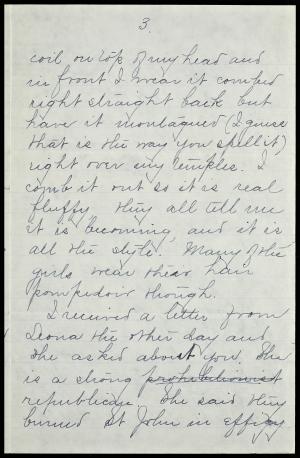 3.
coil on top of my head and
in front I wear it combed
right straight back but
have it montagued (I guess
that is the way you spell it)
right over my temples. I
comb it out so it is real
fluffy. They all tell me
it is becoming, and it is
all the style. Many of the
girls wear their hair
pompedoir though.
I received a letter from
Leona the other day and
she asked about you. She
is a strong prohibitionist
republican. She said they
burned St John in effigy